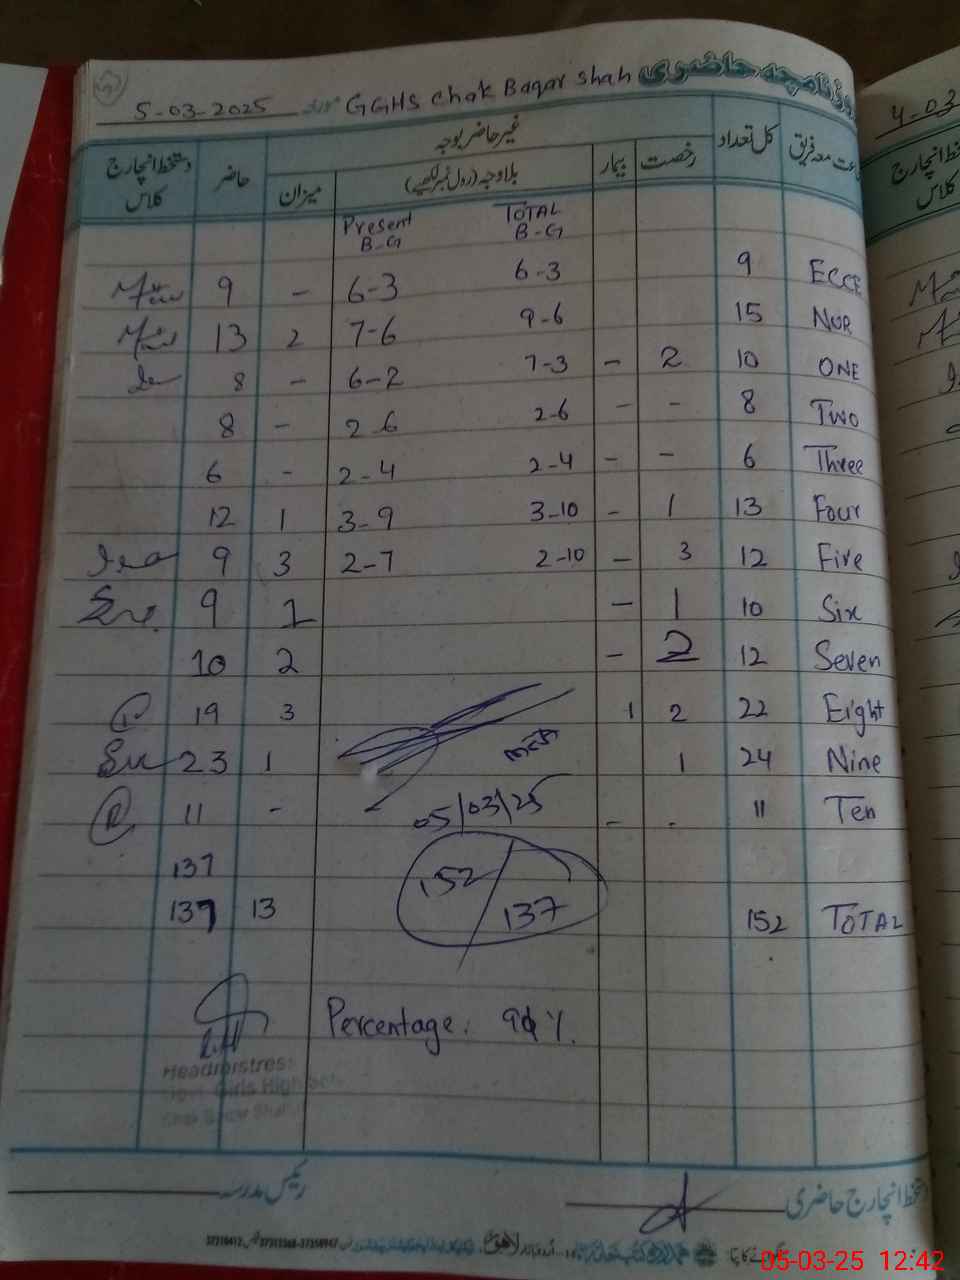 5-03-2025 مورخہ GGHS Chak Baqar Shah روزنامچہ حاضری
جماعت معہ فریق کل تعداد غیر حاضر بوجہ حاضر دستخط انچارج کلاس
رخصت بیمار بلاوجہ (رول نمبر لکھیے) میزان
Present TOTAL
B-G B-G
9 - 6-3 6-3 9 ECCE
13 2 7-6 9-6 15 NUR
8 - 6-2 7-3 - 2 10 ONE
8 - 2-6 2-6 - - 8 Two
6 - 2-4 2-4 - - 6 Three
12 1 3-9 3-10 - 1 13 Four
9 3 2-7 2-10 - 3 12 Five
9 1 - 1 10 Six
10 2 - 2 12 Seven
19 3 1 2 22 Eight
23 1 1 24 Nine
11 - 05/03/25 - . 11 Ten
137 152
137 13 137 152 TOTAL
Percentage: %
Headmistress
Govt. Girls High
رئیس مدرسہ دستخط انچارج حاضری
لاہور
05-03-25 12:42
4-03
دستخط انچارج
کلاس